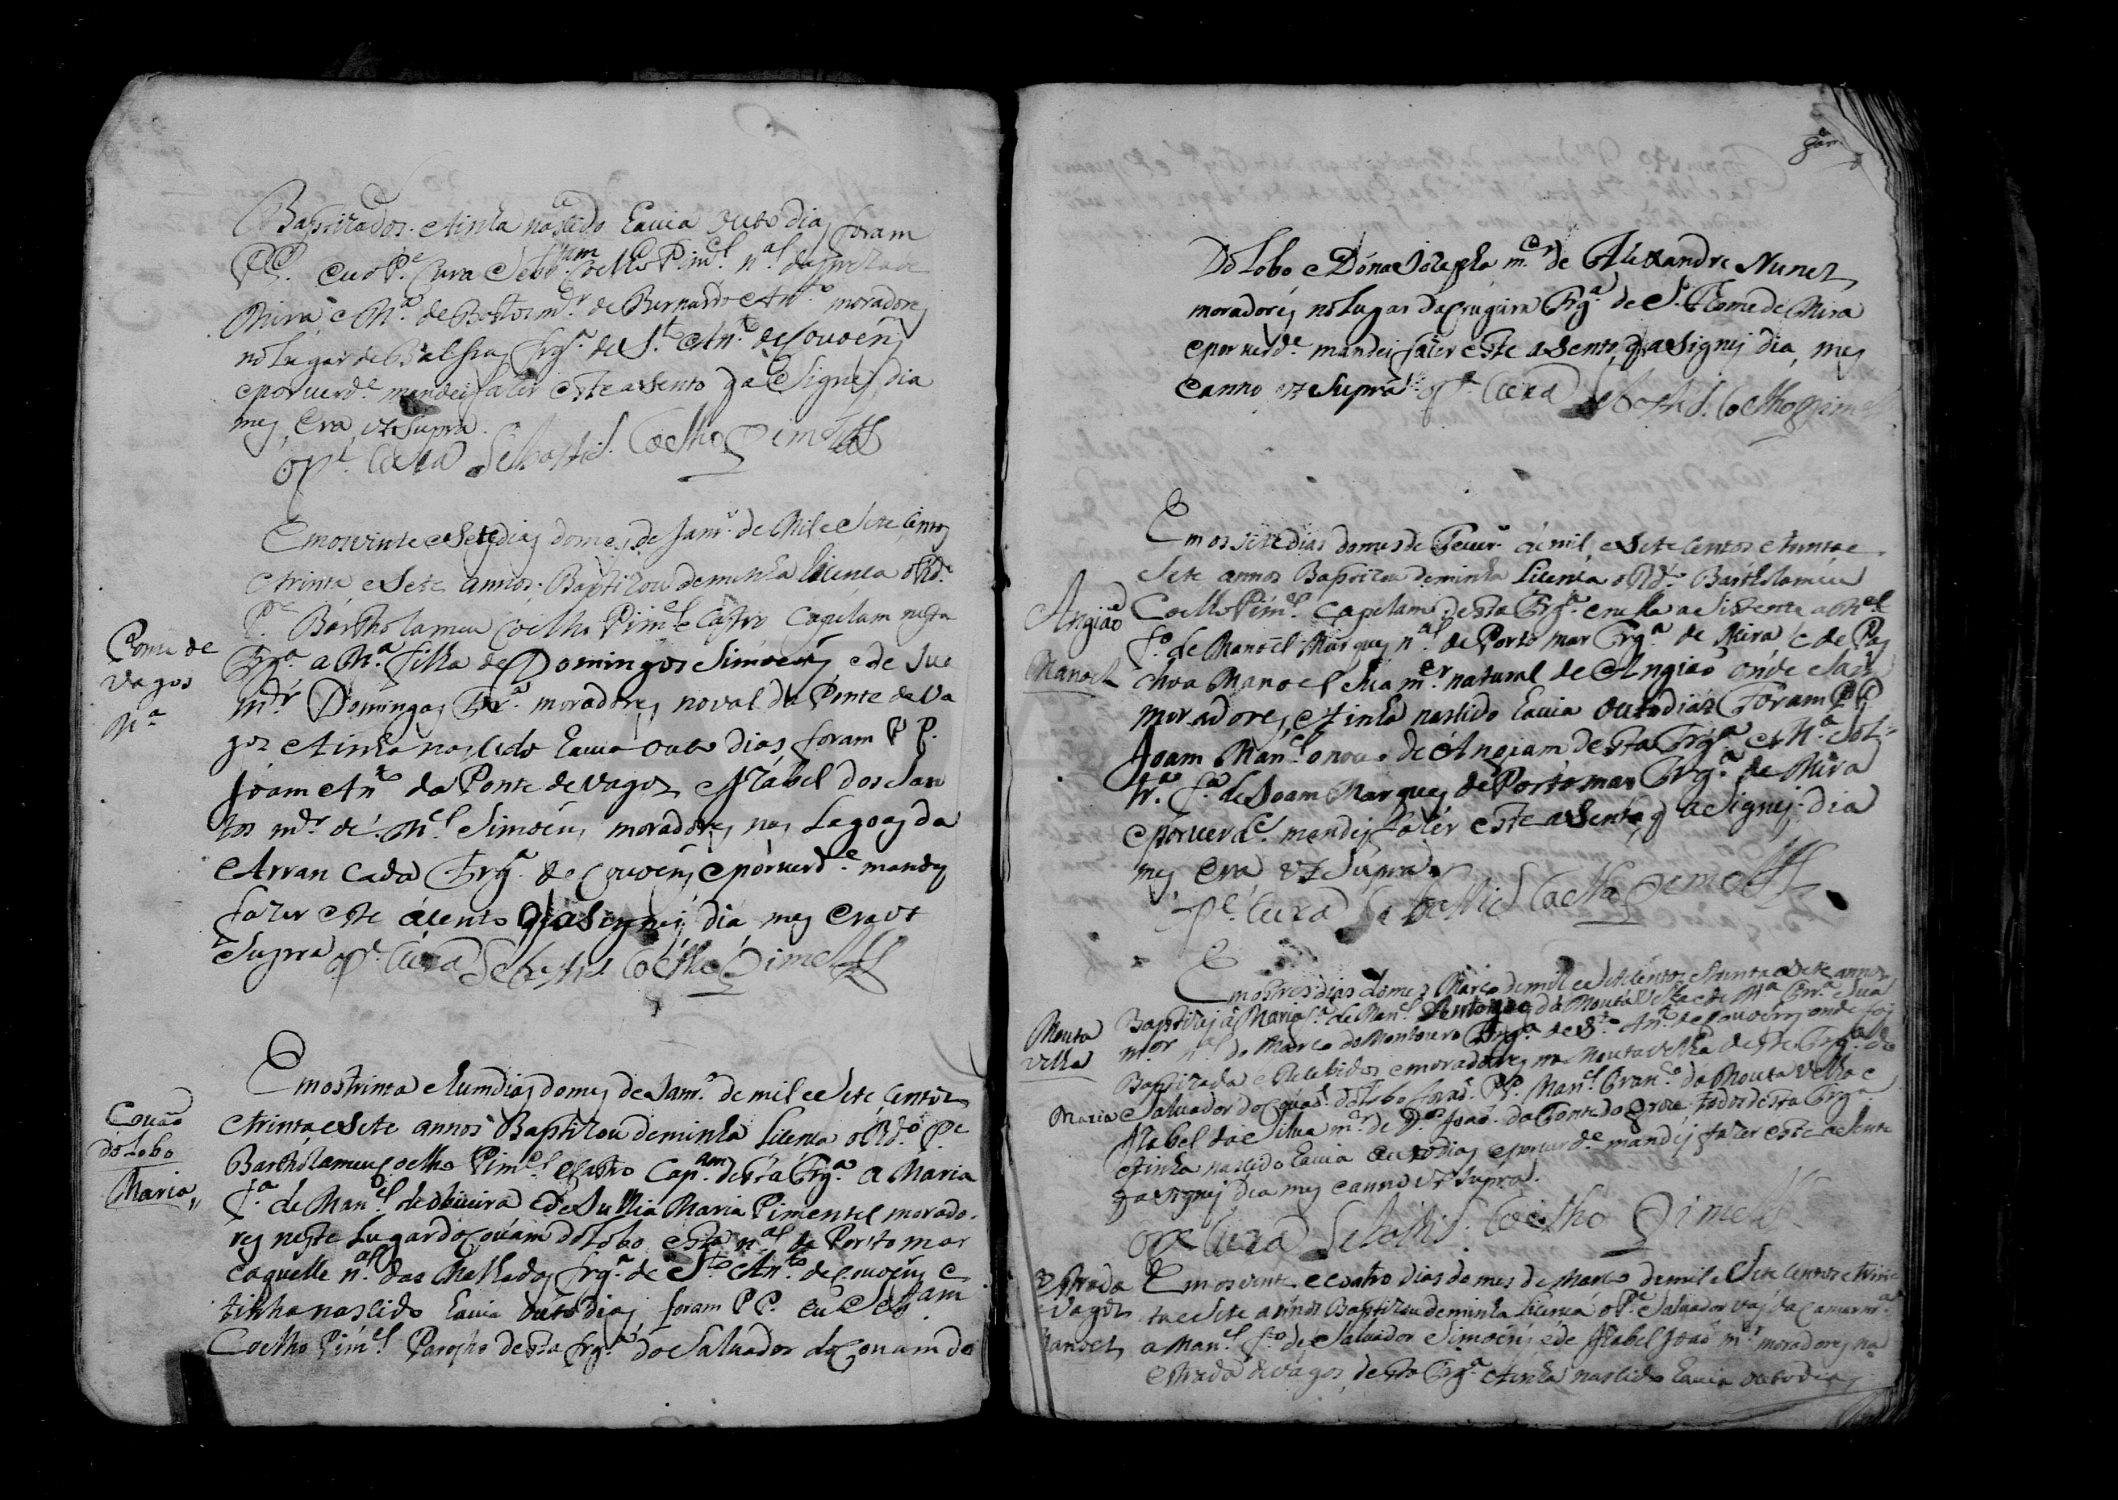 Baptizados. e tinha naſcido havia outo dias foram
PP. eu o P.e Cura Sebam Coelho Pim.el n.al da
Mira e M.a de Bastos m.er de Bernardo Ant.o moradores
no lugar de Balsas frg.a de S.to Ant.o de Covoens
e por verd.e mandei fazer este asento q asignei dia
mes era ut supra
o P.e Cura Sebastiã Coelho Pimel
Em os vinte e sete dias do mes de Janr.o de Mil e Sete centos
e trinta e sete annos. Baptizou de minha licença o Rd.o
P.e Bartholameu Coelho Pim.el Castro Capelam nesta
Frg.a a M.a filha de Domingos Simoens e de sua
m.er Domingas Fr.a moradores no val da Ponte de Va
gos e tinha nascido havia outo dias foram PP.
Joam An.to da Ponte de Vagos e Izabel dos San
tos m.er de M.el Simoens moradores nas Lagoas da
Arrancada Frg.a de Covoens e por verd.e mandei
fazer este acento q asignei dia mes era ut
Supra o P.e Cura Sebastiã Coelho Pimel
Ponte de
Vagos
M.a
Em os trinta e hum dias do mes de Janr.o de mil e Sete centos
e trinta e sete annos Baptizou de minha licença o Rd.o P.e
Bartholameu Coelho Pim.el Castro Cap.am desta Frg.a a Maria
f.a de Man.el de oliveira e de Sua Maria Pimentel morado-
res neste Lugar do Covam do Lobo esta n.al de Porto mar
e aquelle n.al das Malhadas frg.a de S.to An.to de Covoens e
tinha nascido havia outo dias foram PP. eu Sebam
Coelho Pim.el Parocho desta frg.a do Salvador do Covam do
Covaõ
do Lobo
Maria
Do Lobo e Dona Jozepha m.er de Alexandre Nunes
moradores no Lugar da frg.a de S. Thome de Mira
e por verd.e mandei fazer este asento, q asignei dia, mes
e anno ut Supra o P.e Cura Sebastiã Coelho Pimel
Em os sete dias do mes de Fever.o de mil e Sete centos e trinta e
Sete annos Baptizou de minha licença o Rd.o Bartholameu
Coelho Pim.el Capelam desta Frg.a e nella asistente a M.el
f.o de Manoel Marques n.al de Porto mar Frg.a de Mira e de Pas
choa Manoel sua m.er natural de Angiaõ onde Saõ
moradores, e tinha nascido havia outo dias Foram PP
Joam Man.el o novo de Angiam desta Frg.a e M.a Sol-
tr.a f.a de Joam Marques de Porto mar Frg.a de Mira
e por verd.e mandei fazer este asento, q asignei dia
mes era ut Supra
o P.e Cura Sebastiã Coelho Pimel
Angiaõ
Manoel
Em os tres dias do mes Março de mil e sete centos e trinta e sete annos
Baptizei a Maria f.a de Man.el Antonio da Mouta Velha e de M.a Fr.a sua
m.er n.al do Marco do Montouro Frg.a de S.to An.to de Covoens onde foi
Baptizada e Recebidos e moradores na Mouta velha deste Frg.a do
Salvador do Covaõ do Lobo foraõ PP. Man.el Fran.co da Mouta Velha e
Izabel da Silva m.er de D.os Joaõ da Fonte do Grou todos desta Frg.a
e tinha nascido havia outo dias e por verd.e mandei fazer este asento
q asignei dia mes e anno ut Supra.
o P.e Cura Sebastiã Coelho Pimel
Mouta
velha
Maria
Em os vinte e coatro dias do mes de Março de mil e Sete centos e trin
ta e Sete annos Baptizou de minha licença o P.e Salvador Vas da Camarnr.a
a Man.el f.o de Salvador Simoens e de Izabel Joaõ m.er moradores na
estrada de Vagos, desta Frg.a e tinha nascido havia outo dias
Estrada
de Vagos
Manoel